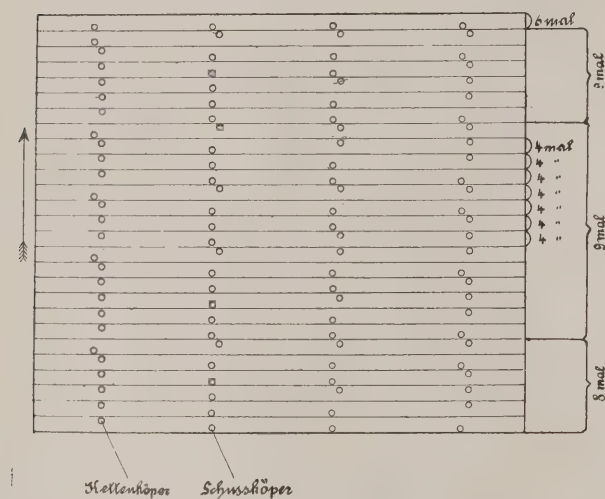 6 mal
mal
4 mal
4 "
4 "
4 "
4 "
4 "
4 "
9 mal
8 mal
Kettenköper Schussköper